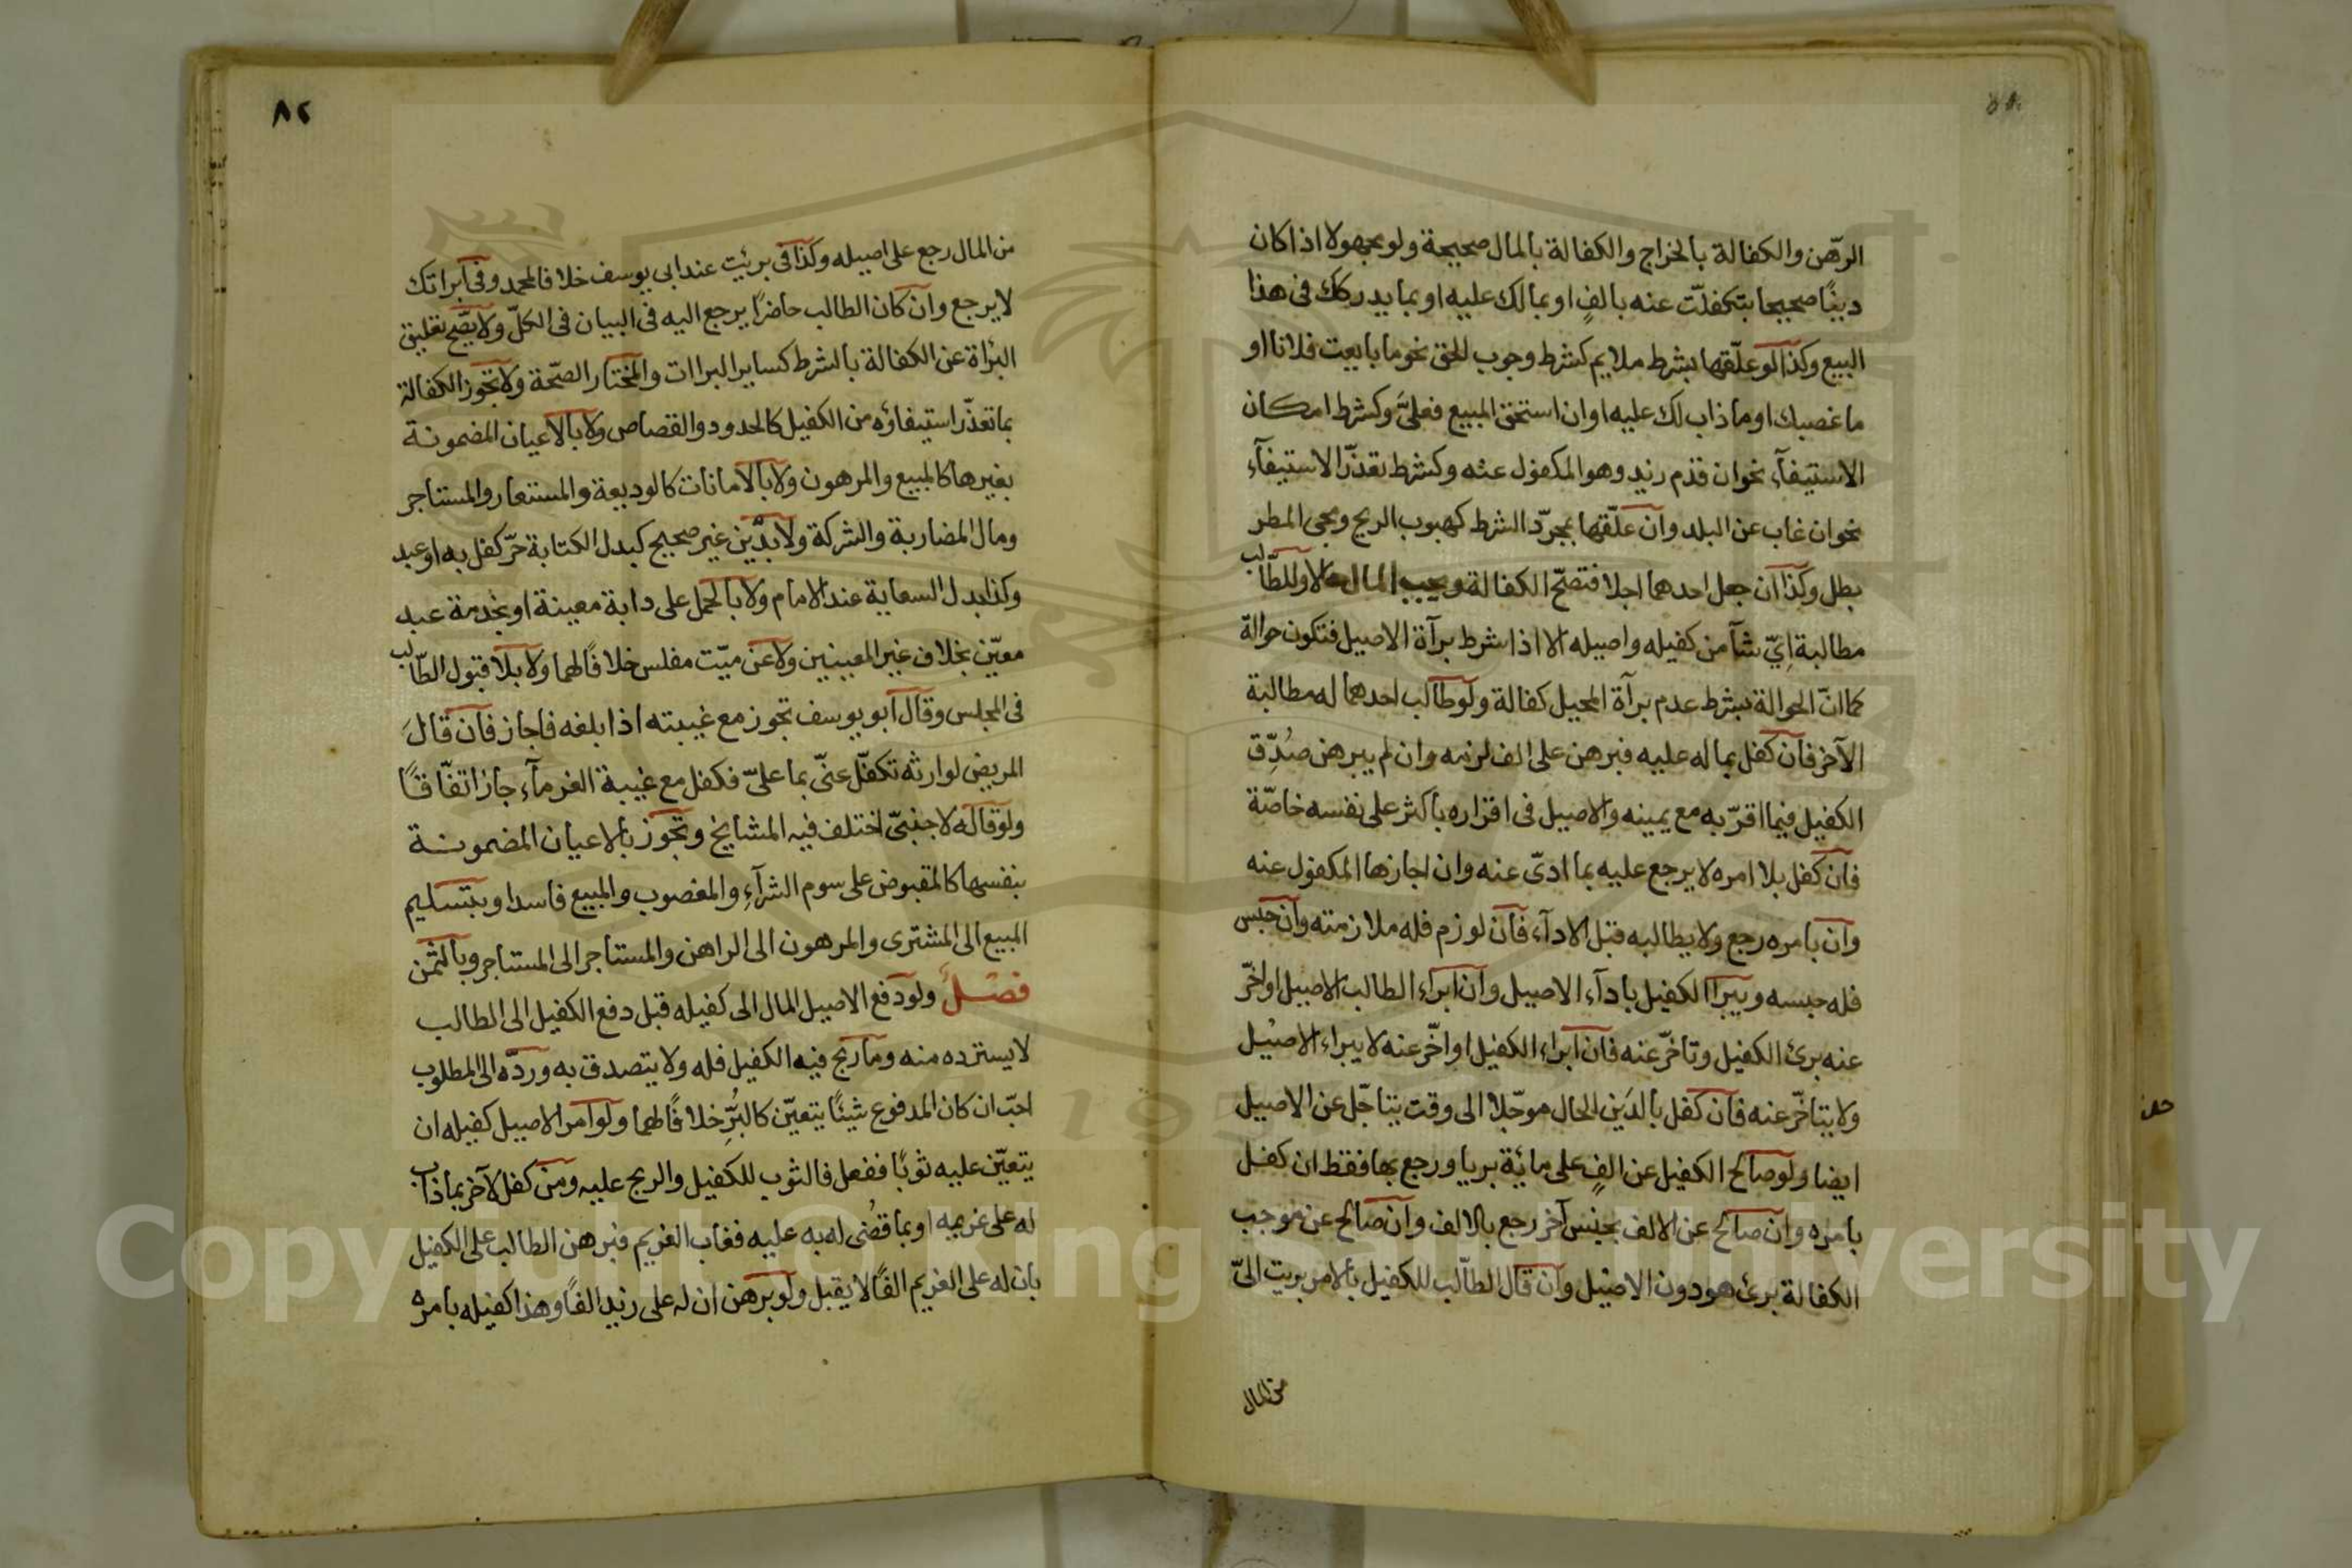 الرّهن والكفالة بالخراج والكفالة بالمال صحيحة ولو مجهولا اذا كان
دينًا صحيحا بتكفلّت عنه بالفٍ او بمالك عليه او بما يدركك فى هذا
البيع وكذا لو علّقها بشرط ملايم كشرط وجوب الحق نحو ما بايعت فلانا او
ما غصبك او ما ذاب لك عليه او ان استحق المبيع فعلىّ وكشرط امكان
الاستيفآء نحو ان قدم زيد وهو المكفول عنه وكشرط تعذّر الاستيفآء
نحو ان غاب عن البلد وان علّقها بمجرّد الشرط كهبوب الريح ومجى المطر
بطل وكذا ان جعل احدهما اجلا فتصحّ الكفالة ويجب المال حالا وللطّالب
مطالبة اىّ شآ من كفيله واصيله الا اذا شرط برآة الاصيل فتكون حوالة
كما انّ الحوالة بشرط عدم برآة المحيل كفالة ولو طالب احدهما له مطالبة
الآخر فان كفل بما له عليه فبرهن على الف لزمه وان لم يبرهن صُدِّق
الكفيل فيما اقرّ به مع يمينه والاصيل فى اقراره بأكثر على نفسه خاصّة
فان كفل بلا امره لا يرجع عليه بما ادىّ عنه وان اجازها المكفول عنه
وان بامره رجع ولا يطالبه قبل الادآء فان لوزم فله ملازمته وان حبس
فله حبسه ويبرا الكفيل بادآء الاصيل وان ابراء الطالب الاصيل او اخّر
عنه برئ الكفيل وتاخّر عنه فان ابراء الكفيل او اخّر عنه لا يبراء الاصيل
ولا يتاخّر عنه فان كفل بالدَين الحال موجّلا الى وقت يتاجّل عن الاصيل
ايضا ولو صالح الكفيل عن الفٍ على مائة بريا ورجع بها فقط ان كفل
بامره وان صالح عن الالف بجنس آخر رجع بالالف وان صالح عن موجب
الكفالة برئ هو دون الاصيل وان قال الطاّلب للكفيل بالامر بريت الىّ
من المال
٨٢
من المال رجع على اصيله وكذا فى برئيت عند ابى يوسف خلافا لمحمد وفى ابراتك
لا يرجع وان كان الطالب حاضرًا يرجع اليه فى البيان فى الكلّ ولا يصّح تعليق
البرُاة عن الكفالة بالشرط كساير البراات والمختار الصّحة ولا تجوز الكفالة
بما تعذّر استيفاؤه من الكفيل كالحدود والقصاص ولا بالاعيان المضمونة
بغيرها كالمبيع والمرهون ولا بالامانات كالوديعة والمستعار والمستاجر
ومال المضاربة والشركة ولا بدَّين غير صحيح كبدل الكتابة حرّ كفل به او عبد
وكذا بدل السعاية عند الامام ولا بالحمل على دابة معينة او بخدمة عبد
معيّن بخلاف غير المعينين ولا عن ميّت مفلس خلافًا لهما ولا بلا قبول الطّالب
فى المجلس وقال ابو يوسف تجوز مع غيبته اذا بلغه فاجاز فان قالَ
المريض لوارثه تكفّل عنّى بما علىّ فكفل مع غيبة الغرمآء جاز اتفّاقًا
ولو قاله لاجنبىّ اختلف فيه المشايخ وتجوز بألاعيان المضمونة
بنفسها كالمقبوض على سوم الشرآءِ والمغصوب والمبيع فاسدا وبتسليم
المبيع الى المشترى والمرهون الى الراهن والمستأجر الى المستاجر وبالثمن
فصْلٌ ولو دفع الاصيل المال الى كفيله قبل دفع الكفيل الى الطالب
لا يسترده منه وما ربح فيه الكفيل فله ولا يتصدق به وردّه الى المطلوب
احبّ ان كان المدفوع شيئًا يتعيّن كالبُرِّ خلافًا لهما ولو امر الاصيل كفيله ان
يتعيّن عليه ثوبًا ففعل فالثوب للكفيل والربح عليه ومن كفل لآخر بما ذاب
له على غريمه او بما قضُى له به عليه فغاب الغريم فبرهن الطالب على الكفيل
بان له على الغريم الفًا لا يقبل ولو برهن ان له على زيد الفًا وهذا كفيله بامره
Copyright © King Saud University